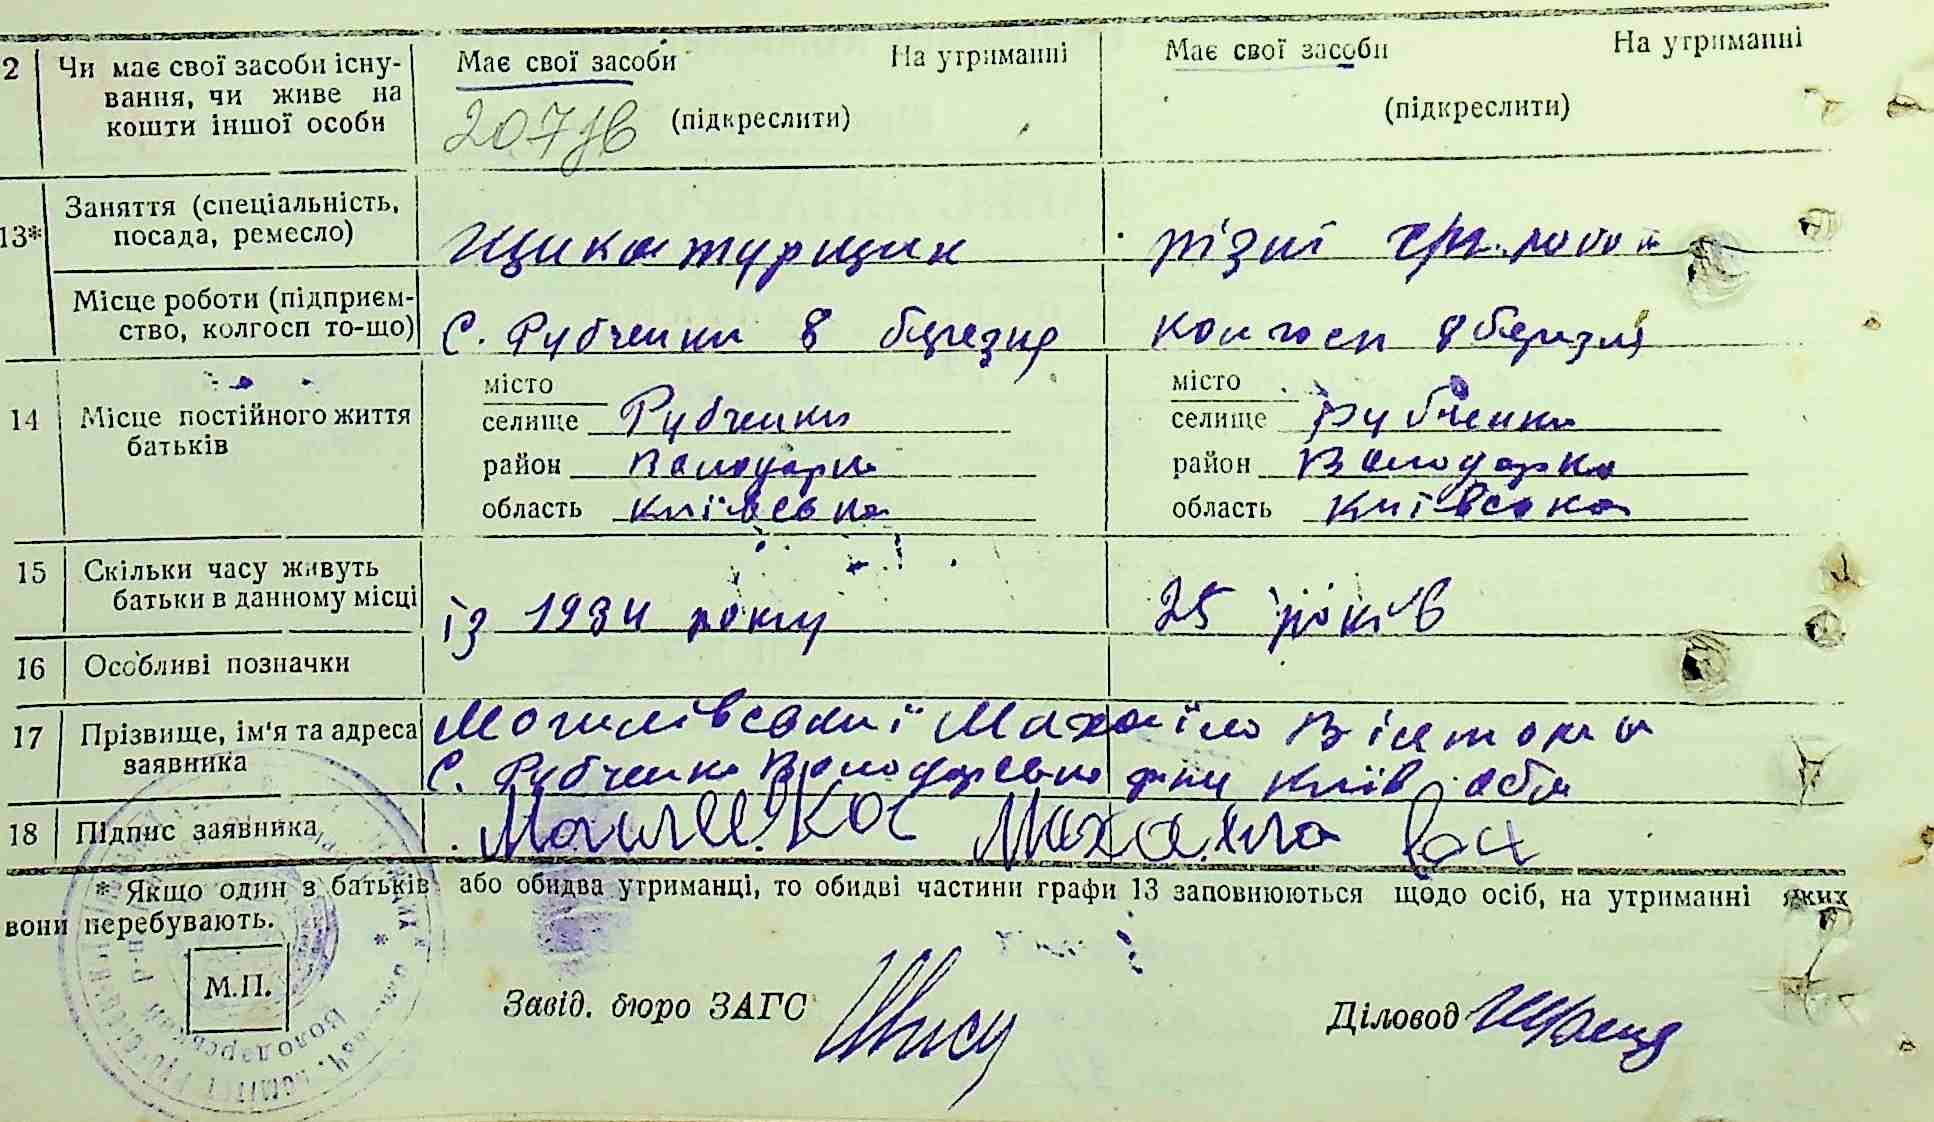 2 Чи має свої засоби існу- Має свої засоби На утриманні Має свої засоби На утриманні
вання, чи живе на
кошти іншої особи (підкреслити) (підкреслити)
13* Заняття (спеціальність,
посада, ремесло) Щикатурщик різні
Місце роботи (підприєм-
ство, колгосп то-що) С. Рубченки 8 березня Колгосп 8 березня
14 Місце постійного життя
батьків
місто місто
селище Рубченки селище Рубченки
район Володарка район Володарка
область Київська область Київська
15 Скільки часу живуть
батьки в данному місці із 1934 року 25 років
16 Особливі позначки
17 Прізвище, ім'я та адреса Могилівський Михайло
заявника С. Рубченки Київ
18 Підпис заявника
* Якщо один з батьків або обидва утриманці, то обидві частини графи 13 заповнюються щодо осіб, на утриманні яких
вони перебувають.
М.П.
Завід. бюро ЗАГС Діловод